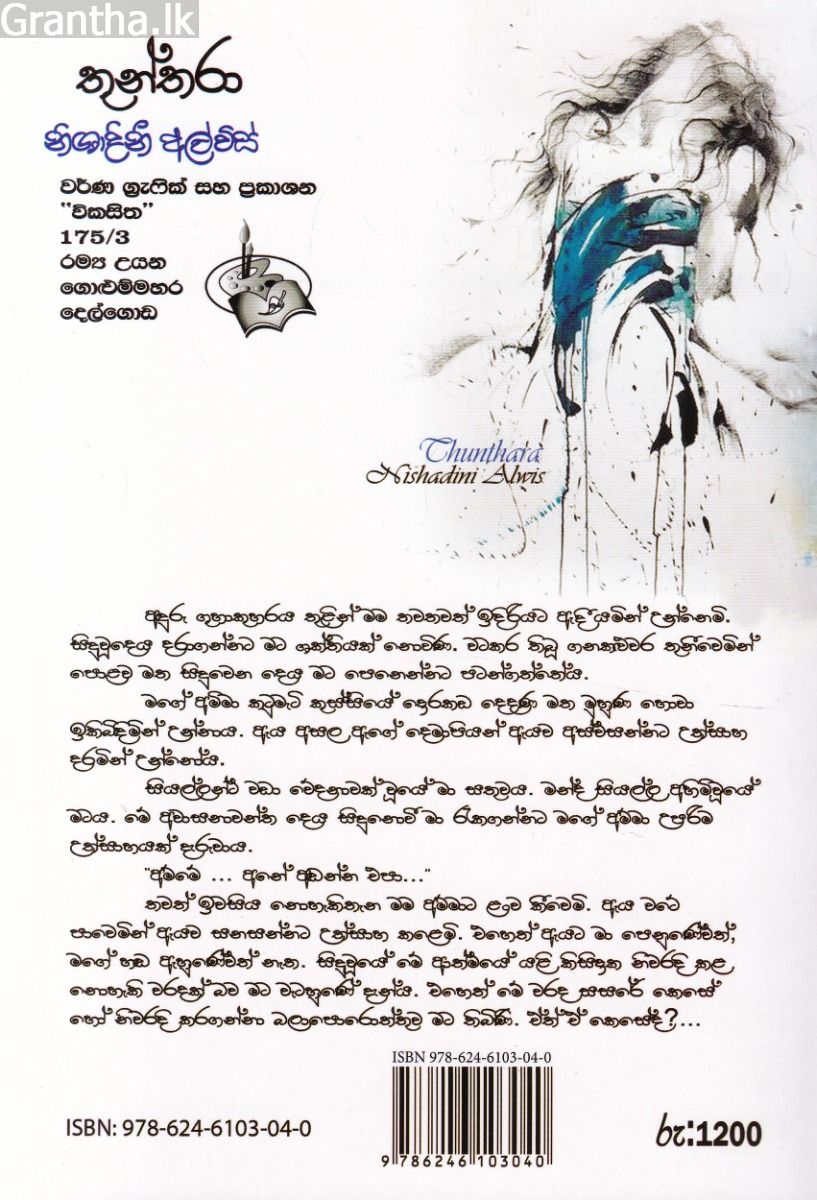 Grantha.lk
තුන්තරා
නිශාදිනී අල්විස්
වර්ණ ග්‍රැෆික් සහ ප්‍රකාශන
"විකසිත"
175/3
රම්‍ය උයන
ගොළුම්මහර
දෙල්ගොඩ
Thunthara
Nishadini Alwis
අඳුරු ගුහාකුහරය තුළින් මම තවතවත් ඉදිරියට ඇදී යමින් උන්නෙමි.
සිදුවූදෙය දරාගන්නට මට ශක්තියක් නොවිණි. වටකර තිබූ ගනකළුවර තුනීවෙමින්
පොළව මත සිදුවෙන දෙය මට පෙනෙන්නට පටන්ගත්තේය.
මගේ අම්මා කුටුමැටි කුස්සියේ දොරකඩ දෙදණ මත මුහුණ හොවා
ඉකිබිඳිමින් උන්නාය. ඇය අසල ඇගේ දෙමාපියන් ඇයව අස්වසන්නට උත්සාහ
දරමින් උන්නෝය.
සියල්ලන්ට වඩා වේදනාවක් වූයේ මා සතුවය. මන්ද සියල්ල අහිමිවූයේ
මටය. මේ අවාසනාවන්ත දෙය සිදුනොවී මා රැකගන්නට මගේ අම්මා උපරිම
උත්සාහයක් දැරුවාය.
"අම්මේ ... අනේ අඬන්න එපා..."
තවත් ඉවසිය නොහැකිතැන මම අම්මාට ළංව කීවෙමි. ඇය වටේ
පාවෙමින් ඇයව සනසන්නට උත්සාහ කළෙමි. එහෙත් ඇයට මා පෙනුණේවත්,
මගේ හඬ ඇහුණේවත් නැත. සිදුවූයේ මේ ආත්මයේ යළි කිසිදාක නිවරදි කළ
නොහැකි වරදක් බව මට වැටහුණේ දැන්ය. එහෙත් මේ වරද සසරේ කෙසේ
හෝ නිවරදි කරගන්නා බලාපොරොත්තුව මට තිබිණි. ඒත් ඒ කෙසේද?...
ISBN 978-624-6103-04-0
ISBN: 978-624-6103-04-0
9 786246 103040
රු:1200